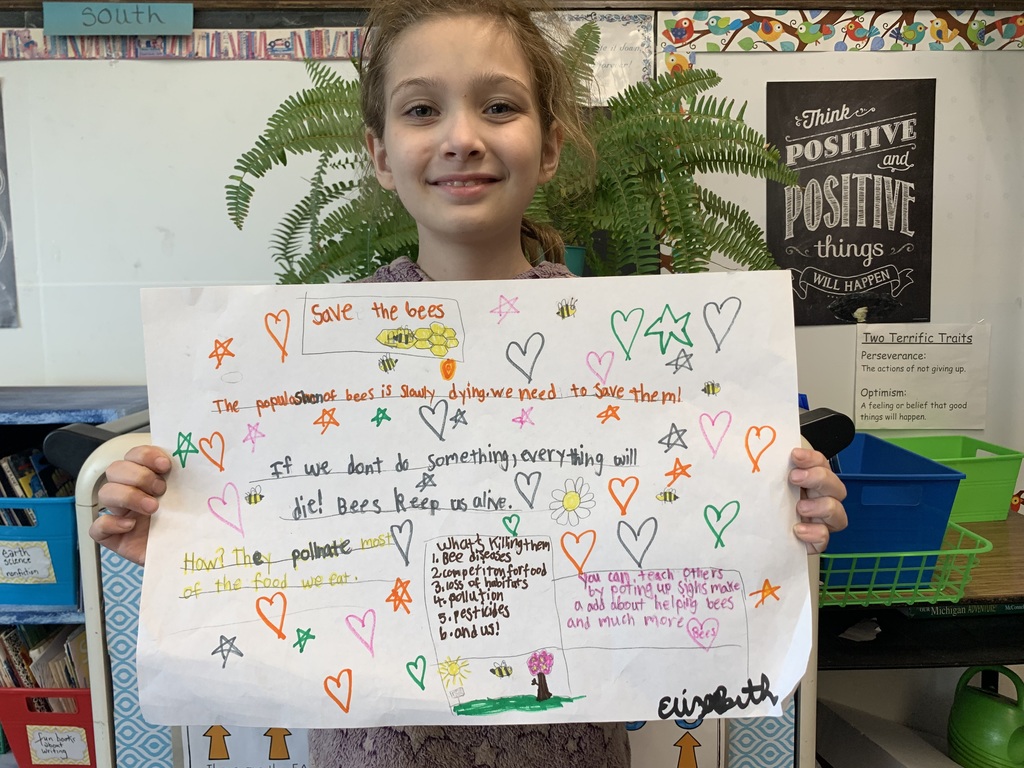 south
Think
POSITIVE
and
POSITIVE
things
WILL HAPPEN
Two Terrific Traits
Perseverance:
The actions of not giving up.
Optimism:
A feeling or belief that good
things will happen.
Save the bees
The populashon of bees is slowly dying. we need to save them!
If we dont do something, every thing will
die! Bees keep us alive.
How? They pollnate most
of the food we eat.
What, killing them
1. Bee diseases
2. competiton for food
3. loss of habitats
4. pollution
5. pesticides
6. and us!
you can, teach others
by poting up sighs make
a add about helping bees
and much more
Bees
Elizabeth
earth
science
nonfiction
fun books
about
writing
Michigan ADVENTURE